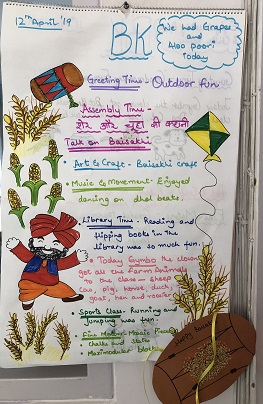 12th April '19
BK
We had Grapes
and
Aloo poori
Today
Greeting Time - Outdoor fun
Assembly Time -
शेर और चूहा की कहानी
Talk on Baisakhi
* Art & Craft - Baisakhi craft
* Music & Movement - Enjoyed
dancing on dhol beats.
* Library Time - Reading and
flipping books in the
library was so much fun.
* Today Gymbo the clown
got all the Farm Animals
to the class - Sheep
Cow, pig, horse, duck,
goat, hen and rooster
* Sports Class - Running and
Jumping was fun.
Mosaic
chalks and slates
* blocks
Happy Baisakhi